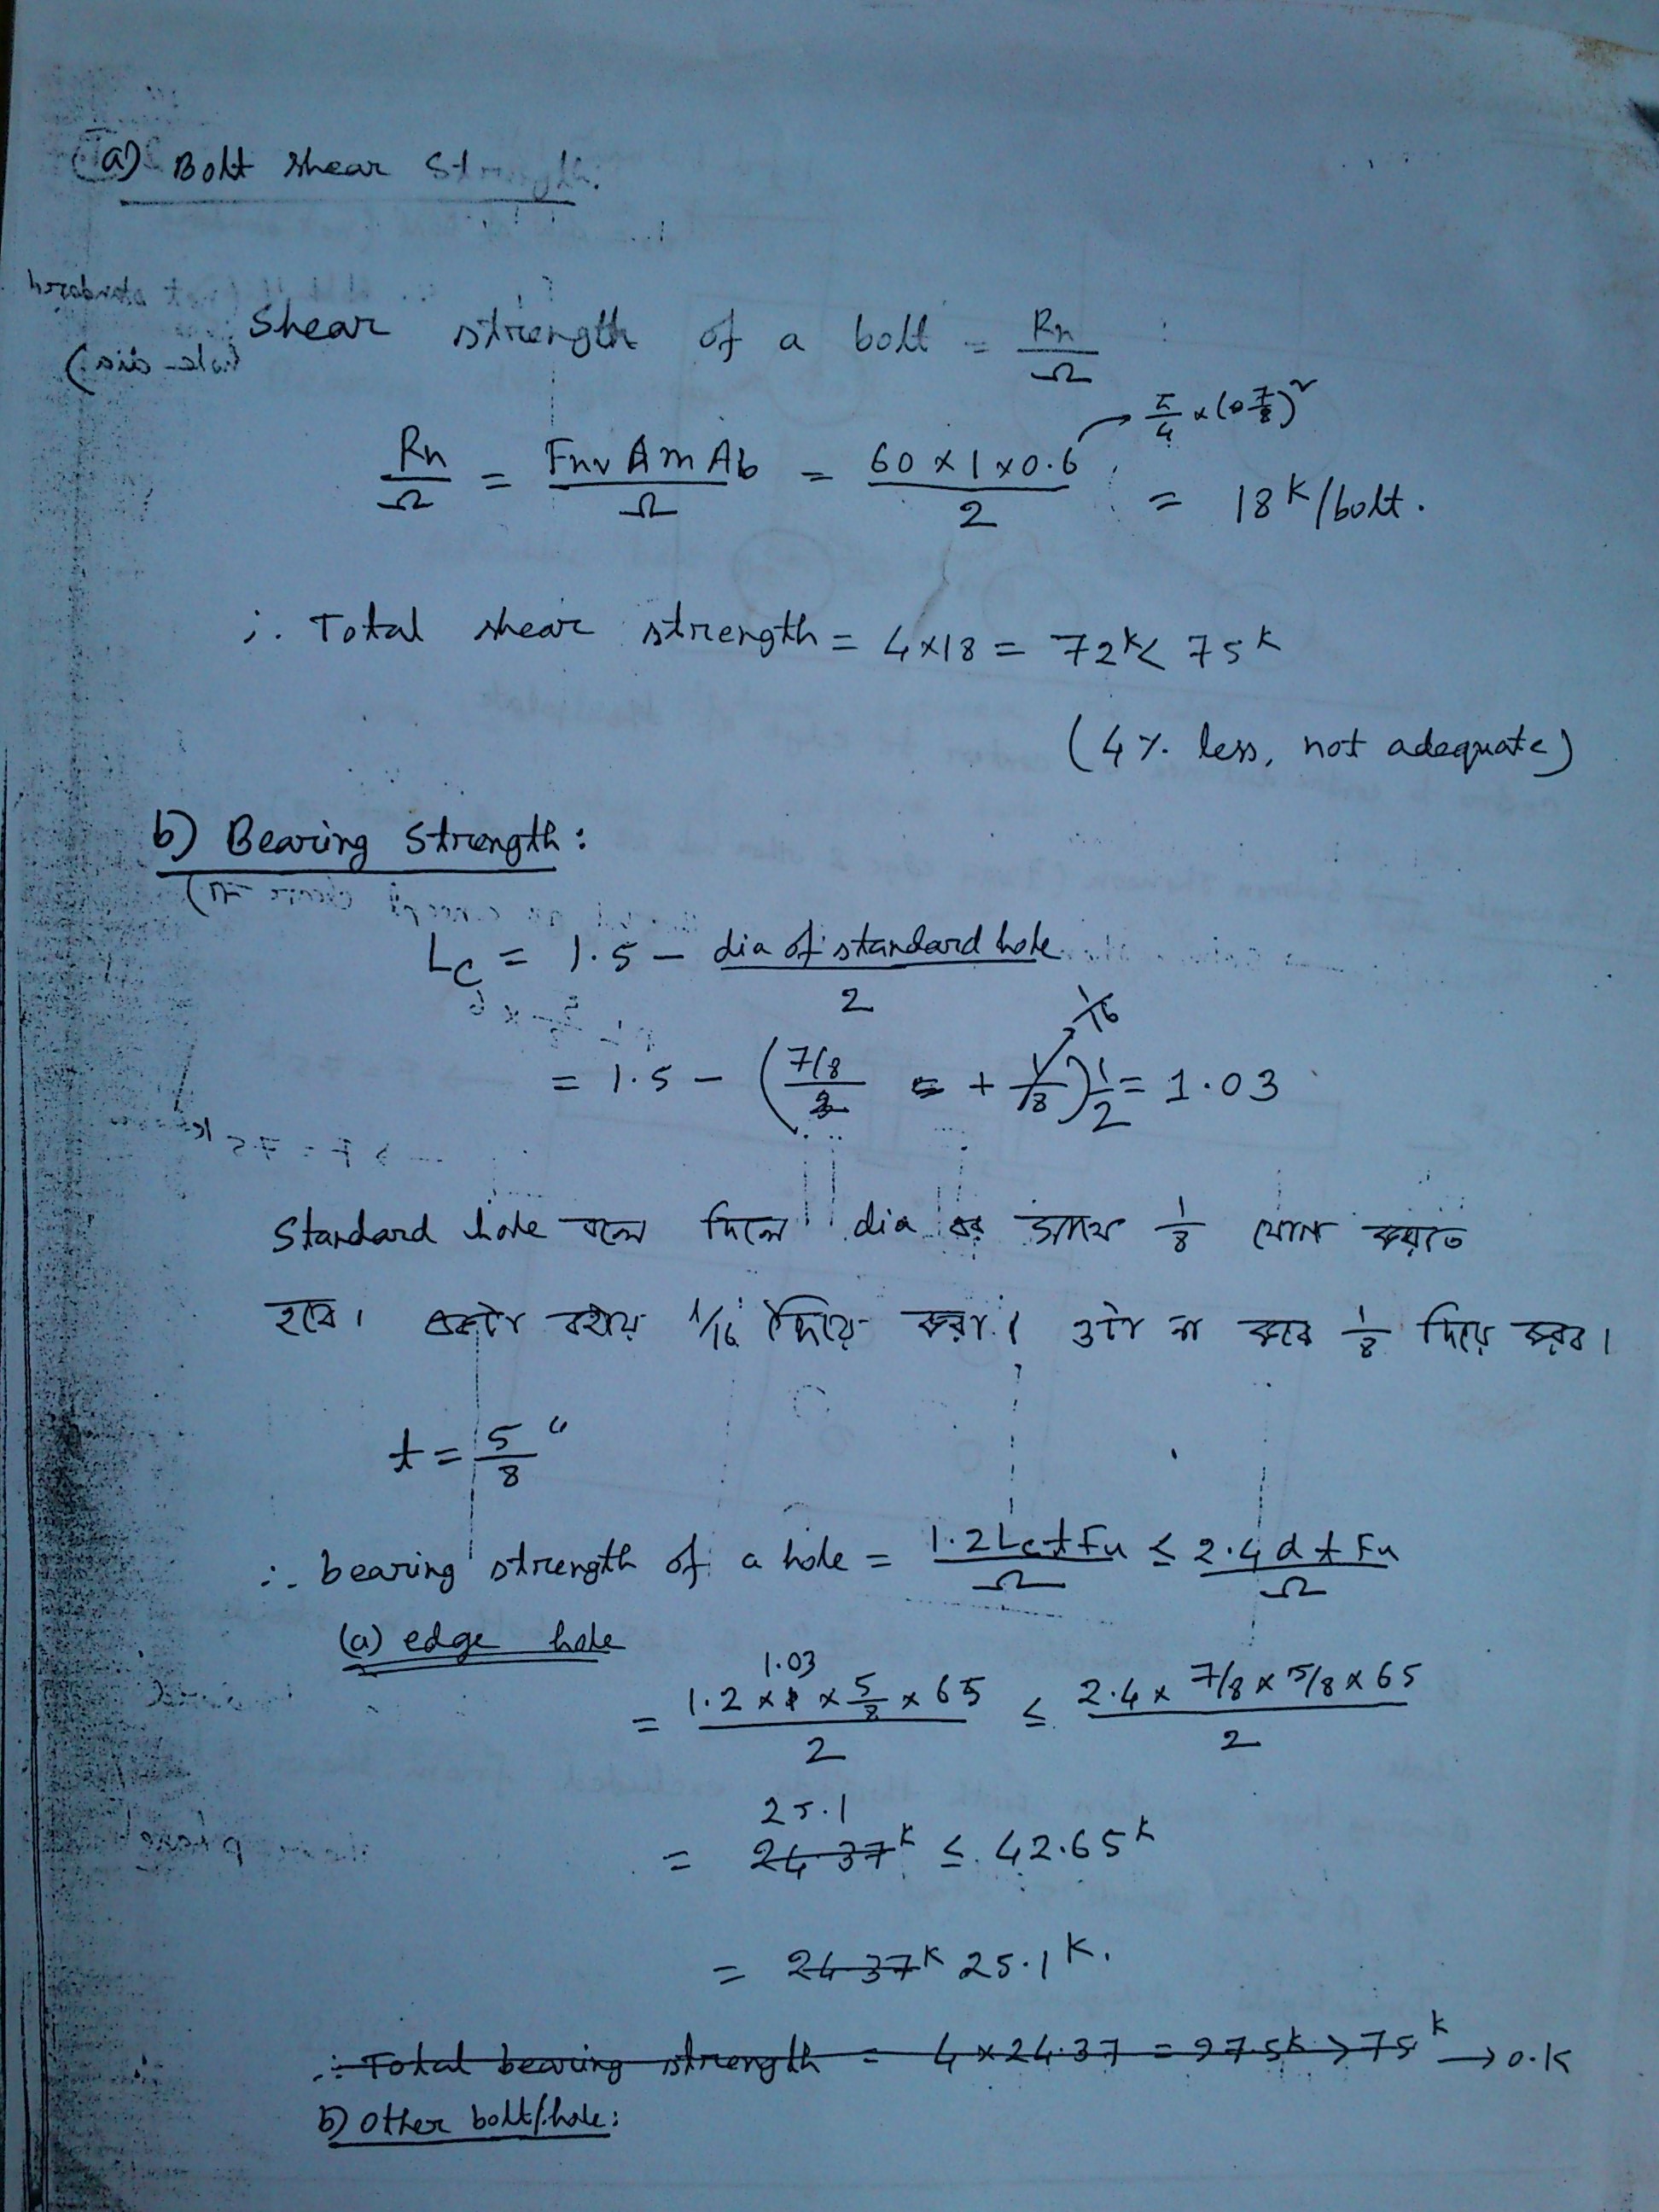 (a) Bolt shear Strength:
Shear strength of a bolt = Rn/Ω
→ π/4 × (0 7/8)²
Rn/Ω = Fnv Am Ab/Ω = 60 × 1 × 0.6/2 = 18 K/bolt.
∴ Total shear strength = 4×18 = 72K < 75K
(4% less, not adequate)
b) Bearing Strength:
Lc = 1.5 - dia of standard hole/2
1/16
= 1.5 - (7/8 + 1/8) 1/2 = 1.03
Standard hole বলে দিলে dia এর সাথে 1/8 যোগ করতে
হবে। বইয়ে 1/16 দিয়ে করা। ওটা না করে 1/8 দিয়ে করব।
t = 5/8"
∴ bearing strength of a hole = 1.2 Lc t Fu/Ω ≤ 2.4 d t Fu/Ω
(a) edge hole
1.03
= 1.2 × 1 × 5/8 × 65/2 ≤ 2.4 × 7/8 × 5/8 × 65/2
25.1
= 24.37K ≤ 42.65K
= 24.37K 25.1K.
∴ Total bearing strength = 4 × 24.37 = 97.5K > 75K → O.K
b) Other bolt/hole: